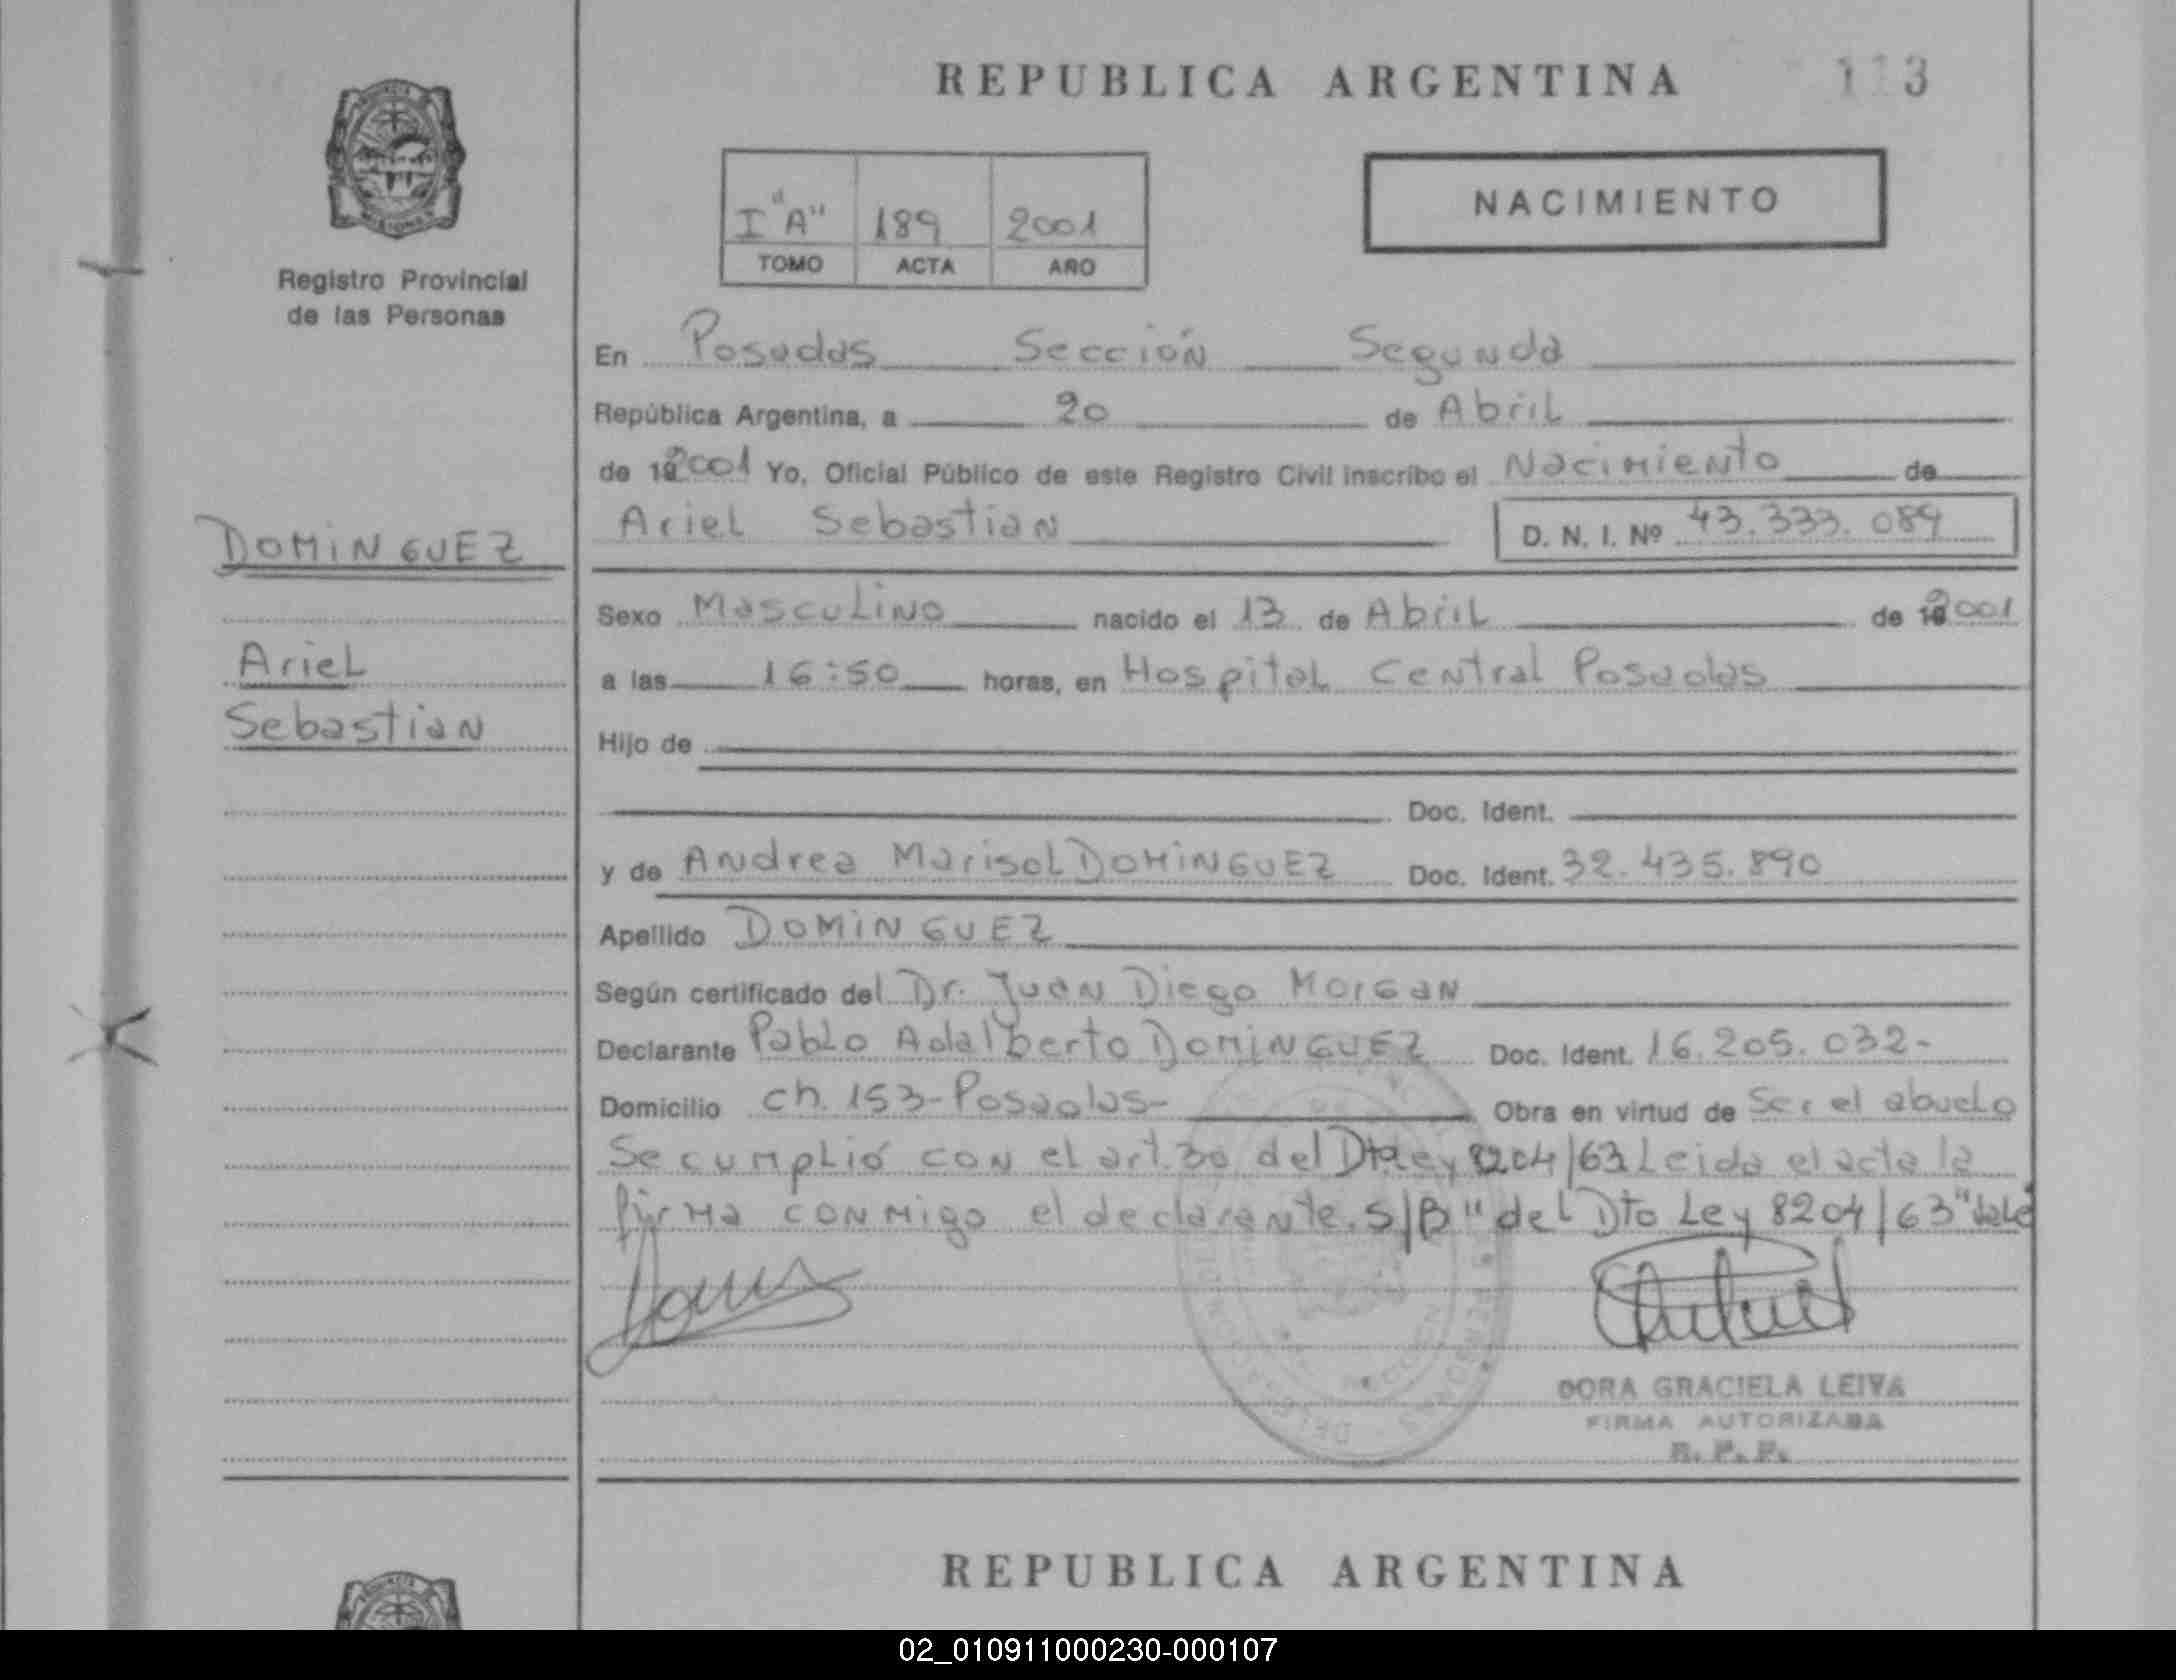 REPUBLICA ARGENTINA
113
NACIMIENTO
I "A" 189 2001
TOMO ACTA AÑO
Registro Provincial
de las Personas
En Posadas Sección Segunda
República Argentina, a 20 de Abril
de 2001 Yo, Oficial Público de este Registro Civil inscribo el Nacimiento de
Ariel Sebastian D. N. I. Nº 43.333.089
DOMINGUEZ
Ariel
Sebastian
Sexo Masculino nacido el 13 de Abril de 2001
a las 16:50 horas, en Hospital Central Posadas
Hijo de
Doc. Ident.
y de Andrea Marisol DOMINGUEZ Doc. Ident. 32.435.890
Apellido DOMINGUEZ
Según certificado del Dr. Juan Diego Morgan
Declarante Pablo Adalberto DOMINGUEZ Doc. Ident. 16.205.032-
Domicilio ch. 153-Posadas- Obra en virtud de Ser el abuelo
Se cumplió con el art. 30 del Dto Ley 8204/63 Leida el acta la
firma conmigo el declarante. S/B "del Dto Ley 8204/63" Vale
DORA GRACIELA LEIVA
FIRMA AUTORIZADA
R. P. P.
REPUBLICA ARGENTINA
02_010911000230-000107